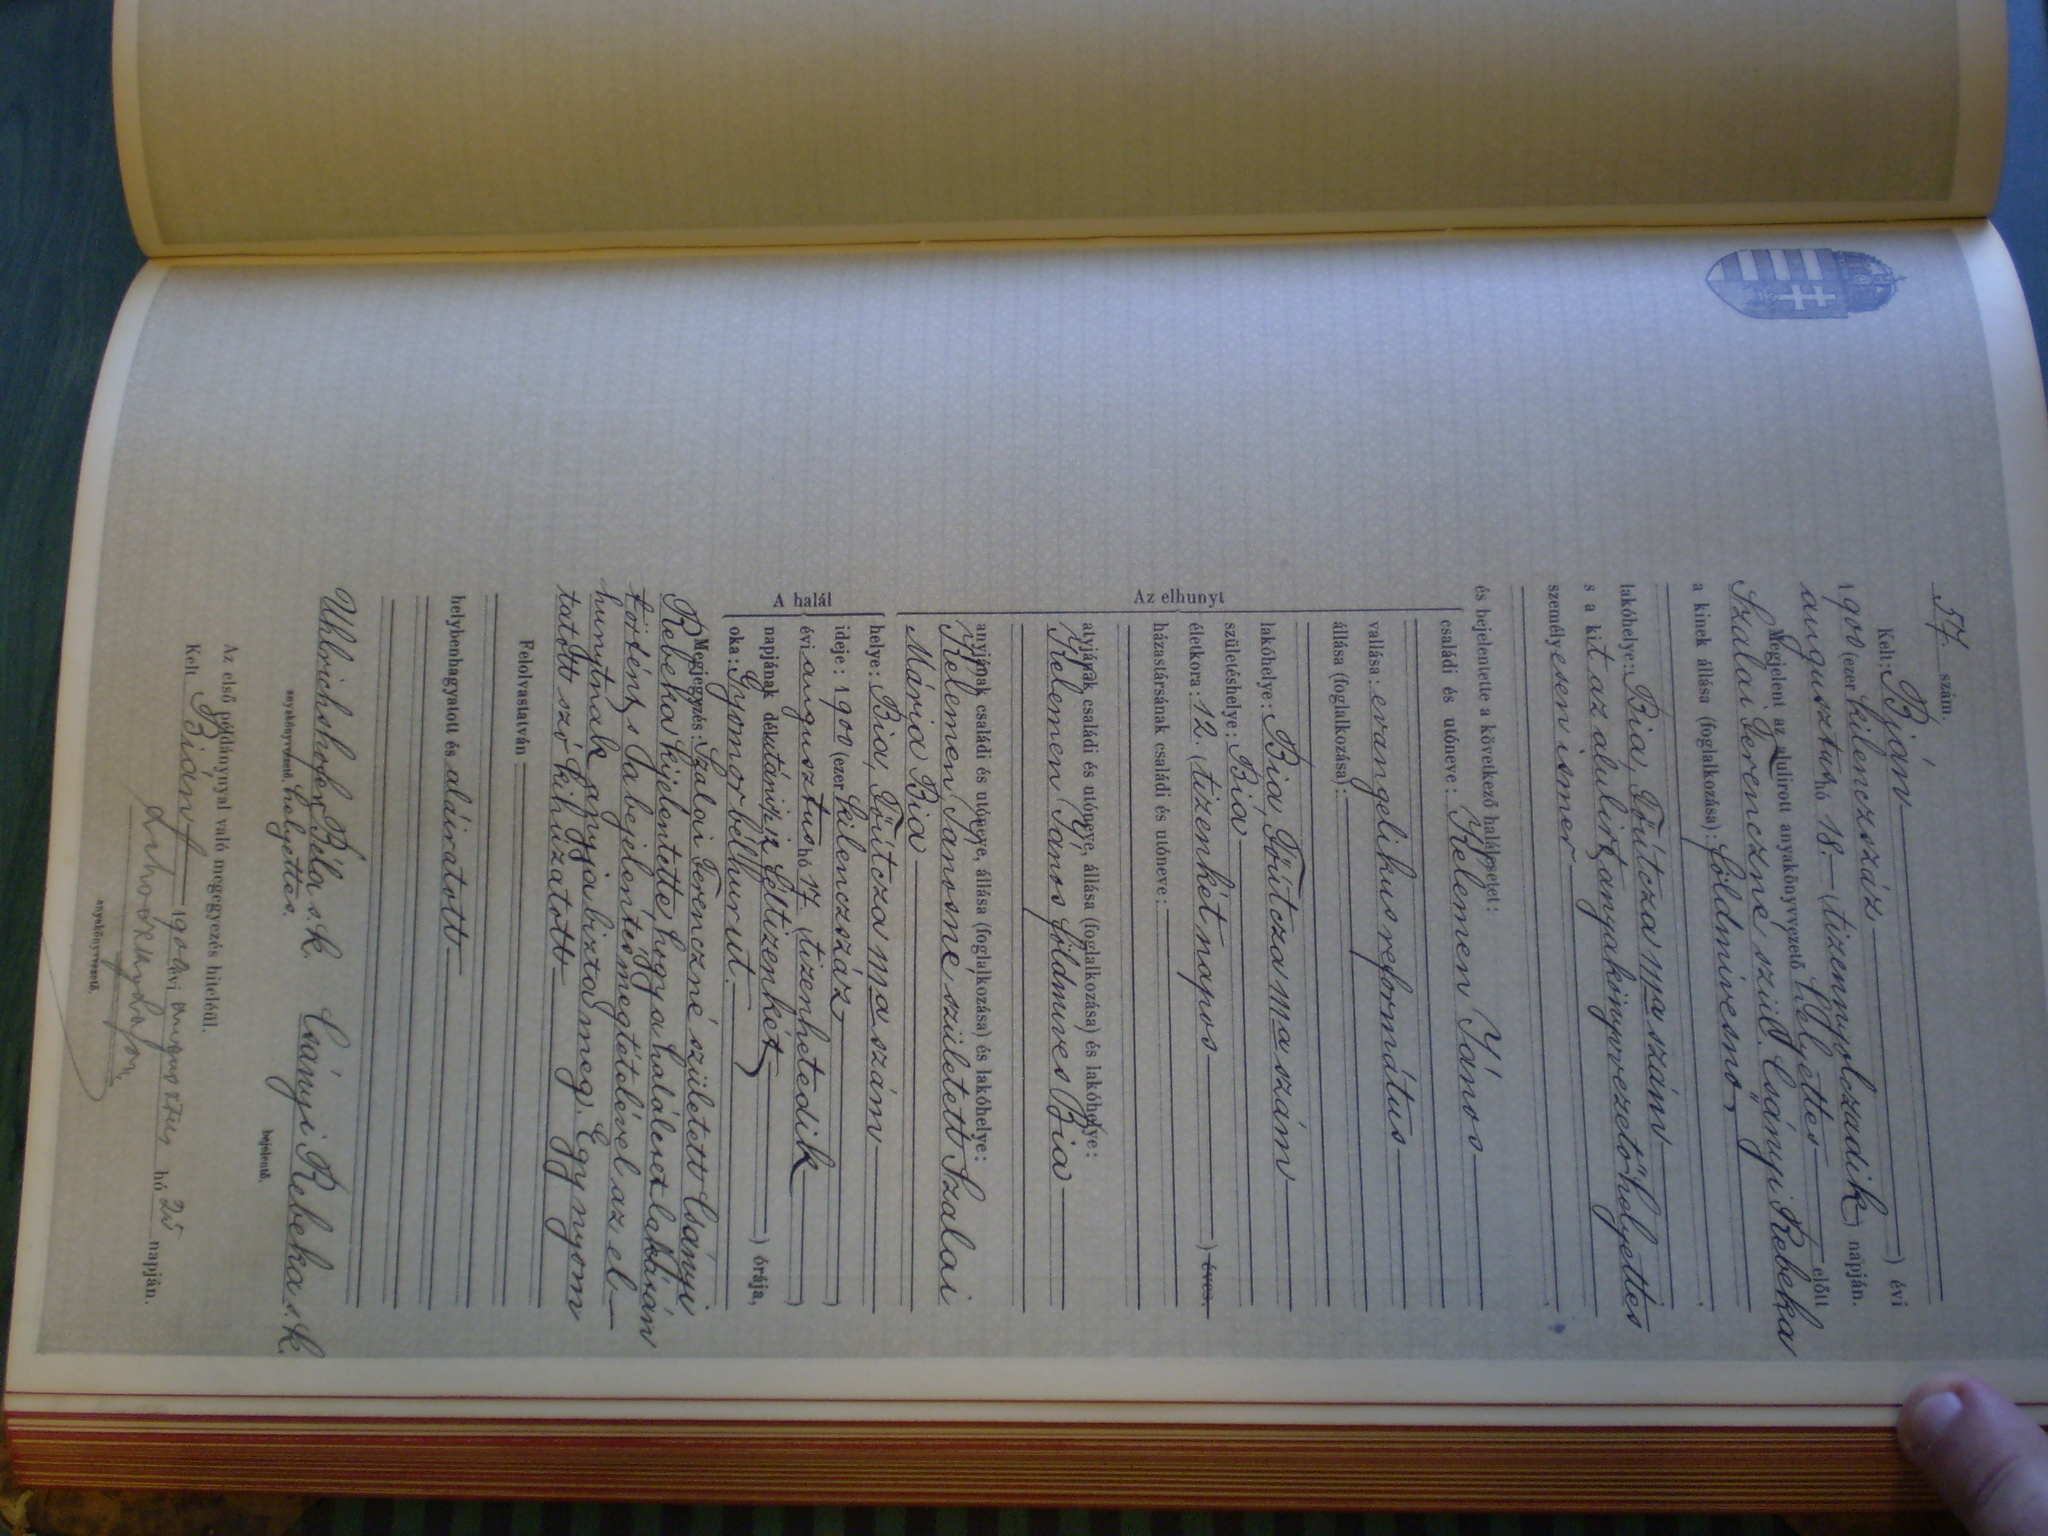 57. szám.
Kelt: Bián
1900 (ezer kilenczszáz) évi
augusztus hó 18 (tizennyolczadik) napján.
Megjelent az alulirott anyakönyvvezető helyettes előtt
Szalai Ferenczné szül. Csányi Rebeka
a kinek állása (foglalkozása): földmivesnő,
lakóhelye: Bia, Főútcza 119a szám
s a kit az alulirt anyakönyvvezetőhelyettes
személyesen ismer
és bejelentette a következő halálesetet:
Az elhunyt
családi és utóneve: Kelemen János
vallása: evangelikus református
állása (foglalkozása):
lakóhelye: Bia, Főútcza 119a szám
születéshelye: Bia
életkora: 12. (tizenkét napos) éves.
házastársának családi és utóneve:
atyjának családi és utóneve, állása (foglalkozása) és lakóhelye:
Kelemen János földmives Bia
anyjának családi és utóneve, állása (foglalkozása) és lakóhelye:
Kelemen Jánosné született Szalai
Mária Bia
A halál
helye: Bia, Főútcza 119a szám
ideje: 1900 (ezer kilenczszáz)
évi augusztus hó 17. (tizenhetedik)
napjának délutáni ½12 (féltizenkét) órája,
oka: Gyomorbélhurut.
Megjegyzés: Szalai Ferenczné született Csányi
Rebeka kijelentette hogy a haláleset lakásán
történt, s a bejelentés megtételével az el-
hunytnak anyja bizta meg. Egy nyom
tatott szó kihúzatott
Felolvastatván
helybenhagyatott és aláiratott
Uhlrichshofer Béla s. k. Csányi Rebeka s. k.
anyakönyvvezető helyettes. bejelentő.
Az első példánynyal való megegyezés hiteléül.
Kelt Bián 1900 évi augusztus hó 25 napján.
anyakönyvvezető.